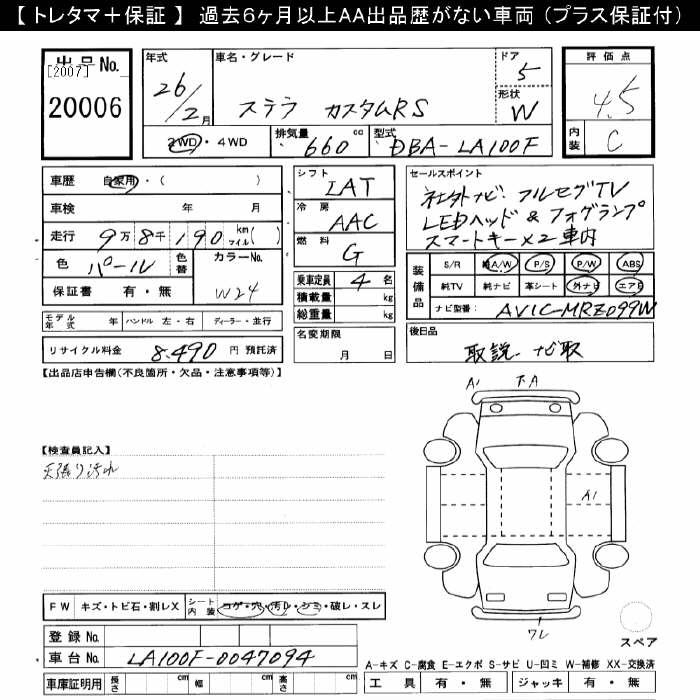 【 トレタマ＋保証 】 過去6ヶ月以上AA出品歴がない車両 （プラス保証付）
出品No.
[2007]
20006
年式
26/2月
車名・グレード
ステラ カスタムRS
ドア
5
形状
W
2WD・4WD
排気量 660 cc
型式 DBA-LA100F
評価点
4.5
内装 C
車歴 自家用・( )
車検 年 月
走行 9万8千190 km マイル( )
色 パール 色替
カラーNo.
W24
保証書 有・無
シフト
IAT
冷房
AAC
燃料
G
乗車定員 4 名
積載量 kg
総重量 kg
セールスポイント
社外ナビ・フルセグTV
LEDヘッド & フォグランプ
スマートキー×2 車内
装備品
S/R 純A/W P/S P/W ABS
純TV 純ナビ 革シート 外ナビ エアB
ナビ型番: AVIC-MRZ099W
モデル年式 年 ハンドル 左・右 ディーラー・並行
リサイクル料金 8,490 円 預託済
名変期限
月 日
後日品
取説 ナビ取
【出品店申告欄(不良箇所・欠品・注意事項等)】
A1 下A
【検査員記入】
天張り汚れ
A1
FW キズ・トビ石・割レX
シート内装 コゲ・穴・汚レ・シミ・破レ・スレ
ワレ
スペア
登録No.
車台No. LA100F-0047094
車庫証明用 長さ cm 幅 cm 高さ cm
A-キズ C-腐食 E-エクボ S-サビ U-凹ミ W-補修 XX-交換済
工具 有・無 ジャッキ 有・無